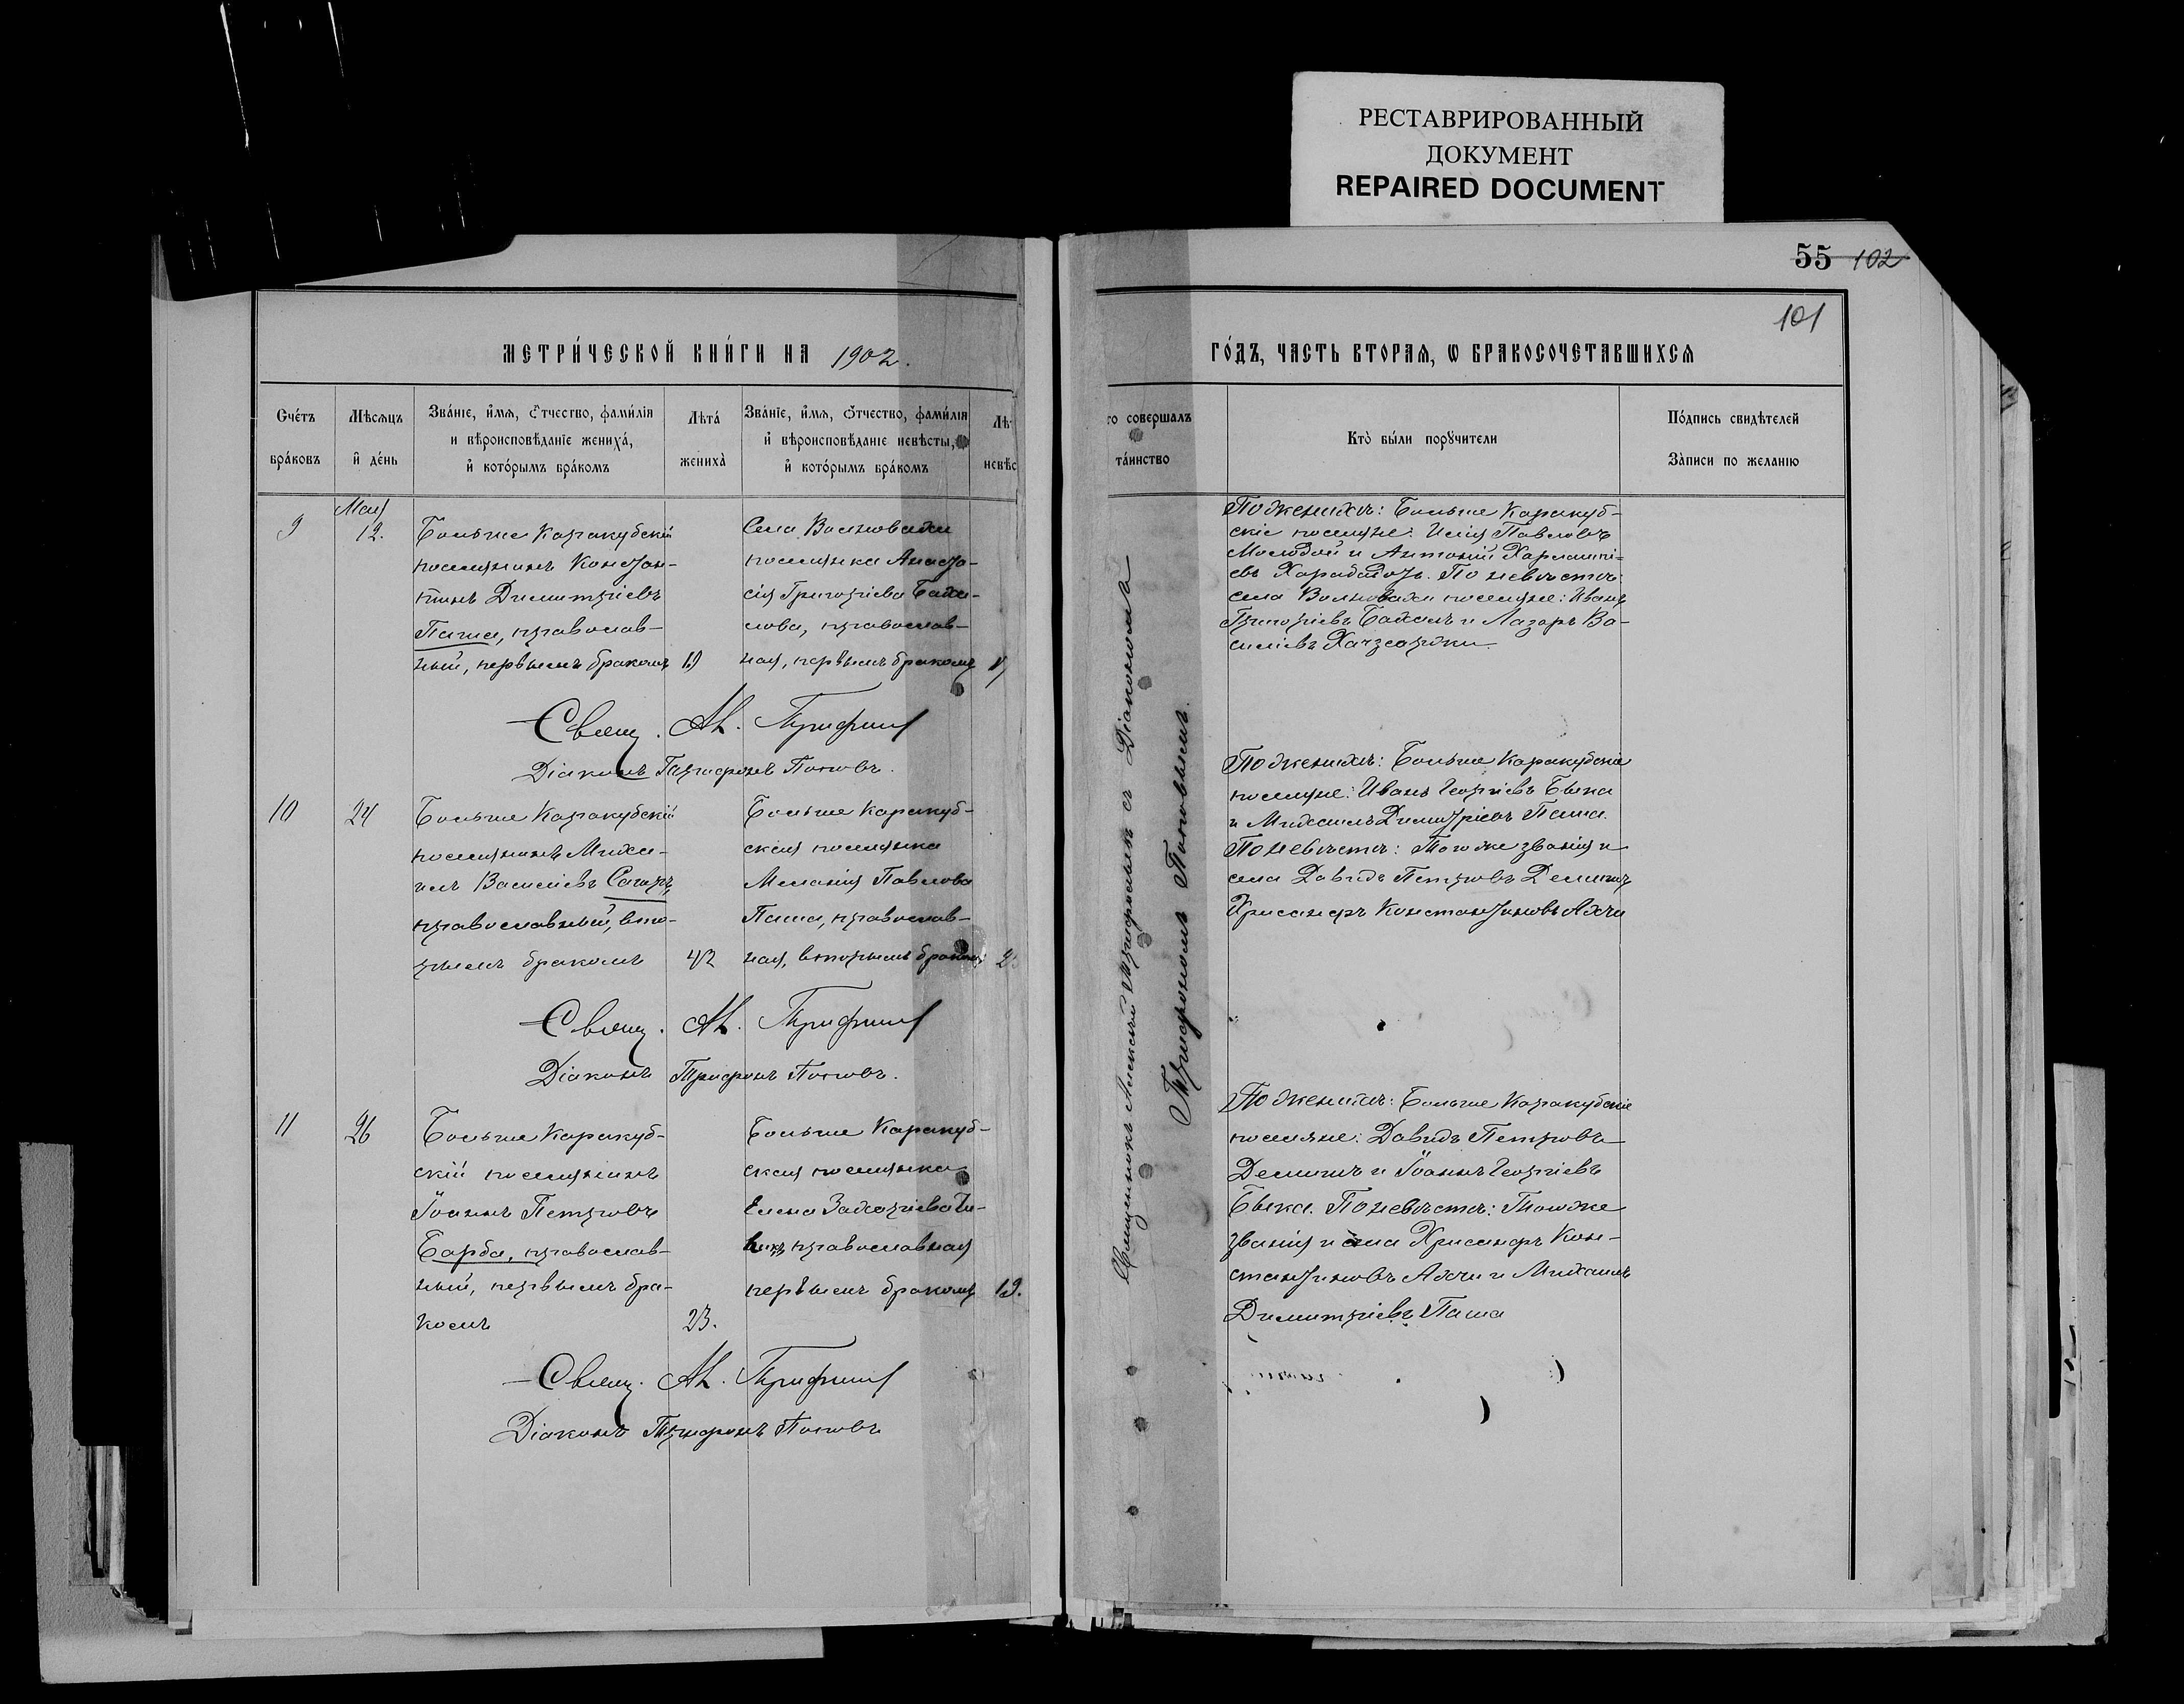 РЕСТАВРИРОВАННЫЙ
ДОКУМЕНТ
REPAIRED DOCUMENT
55 102
101
МЕТРИ́ЧЕСКОЙ КНИ́ГИ НА 1902.
ГО́ДЪ, ЧАСТЬ ВТОРАѦ, Ѡ БРАКОСОЧЕТАВШИХСѦ
Сче́тъ
бра́ковъ
Мѣсѧцъ
и҆ де́нь
Зва́нїе, и҆́мѧ, ѻ҆́тчество, фами́лїѧ
и вѣроисповѣ́данїе жениха́,
и҆ кото́рымъ бра́комъ
Лѣта́
жениха̀
Зва́нїе, и҆́мѧ, ѻ҆́тчество, фами́лїѧ
и҆ вѣроисповѣ́данїе невѣ́сты,
и҆ кото́рымъ бра́комъ
Лѣ
невѣс
го соверша́лъ
та́инство
Кто̀ бы́ли порꙋчи́тели
По́дпись свидѣ́телей
За̀писи по жела́нїю
9
Мая
12.
Больше Каракубскій
поселянинъ Констан-
тинъ Димитріевъ
Паша, православ-
ный, первымъ бракомъ
19
Села Волновахи
поселянка Анаста-
сія Григоріева Баха-
лова, православ-
ная, первымъ бракомъ
Свящ. Ал. Трифил
Діаконъ Трифонъ Поповъ.
По женихѣ: Больше Каракуб-
скіе поселяне: Илія Павловъ
Молодой и Антоній Харлампі-
евъ Харабадотъ. По невѣстѣ:
села Волновахи поселяне: Иванъ
Григоріевъ Бахалъ и Лазарь Ва-
силіевъ
10
24
Больше Каракубскій
поселянинъ Миха-
илъ Василіевъ Сагиръ,
православный, вто-
рымъ бракомъ
42
Больше Каракуб-
ская поселянка
Меланія Павлова
Паша, православ-
ная, вторымъ бракомъ
Свящ. Ал. Трифил
Діаконъ Трифонъ Поповъ.
По женихѣ: Больше Каракубскіе
поселяне: Иванъ Георгіевъ Быка
и Михаилъ Димитріевъ Паша.
По невѣстѣ: Того же званія и
села Давидъ Петровъ Делигичъ
Хрисанфъ Константиновъ Ахчи
11
26
Больше Каракуб-
скій поселянинъ
Іоаннъ Петровъ
Барба, православ-
ный, первымъ бра-
комъ
23.
Больше Каракуб-
ская поселянка
Елена Захаріева
православная
первымъ бракомъ
19.
Свящ. Ал. Трифил
Діаконъ Трифонъ Поповъ
По женихѣ: Больше Каракубскіе
поселяне: Давидъ Петровъ
Делигичъ и Іоаннъ Георгіевъ
Быка. По невѣстѣ: Того же
званія и села Хрисанфъ Кон-
стантиновъ Ахчи и Михаилъ
Димитріевъ Паша
Священникъ Алексій Трифильевъ съ Діакономъ
Трифономъ Поповымъ.